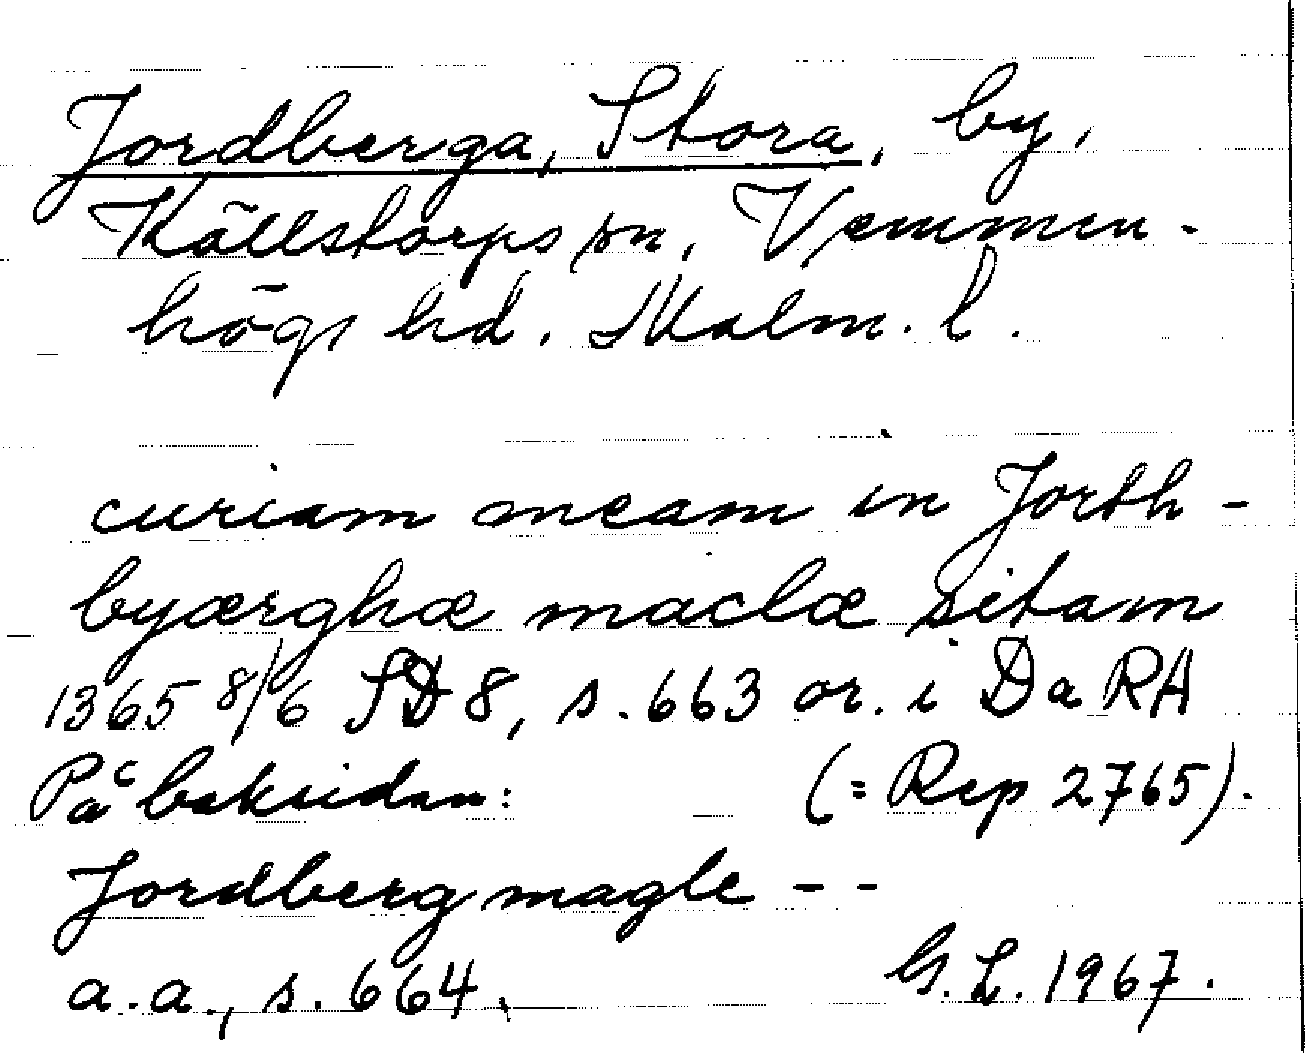 Jordberga, Stora, by,
Källstorps sn, Vemmen-
högs hd. Malm. l.
curiam meam in Jorth-
byærghæ maclæ sitam
1365 8/6 SD 8, s. 663 or. i Da RA
På baksidan: (= Rep 2765).
Jordberg magle - -
a.a., s. 664. G.L. 1967.